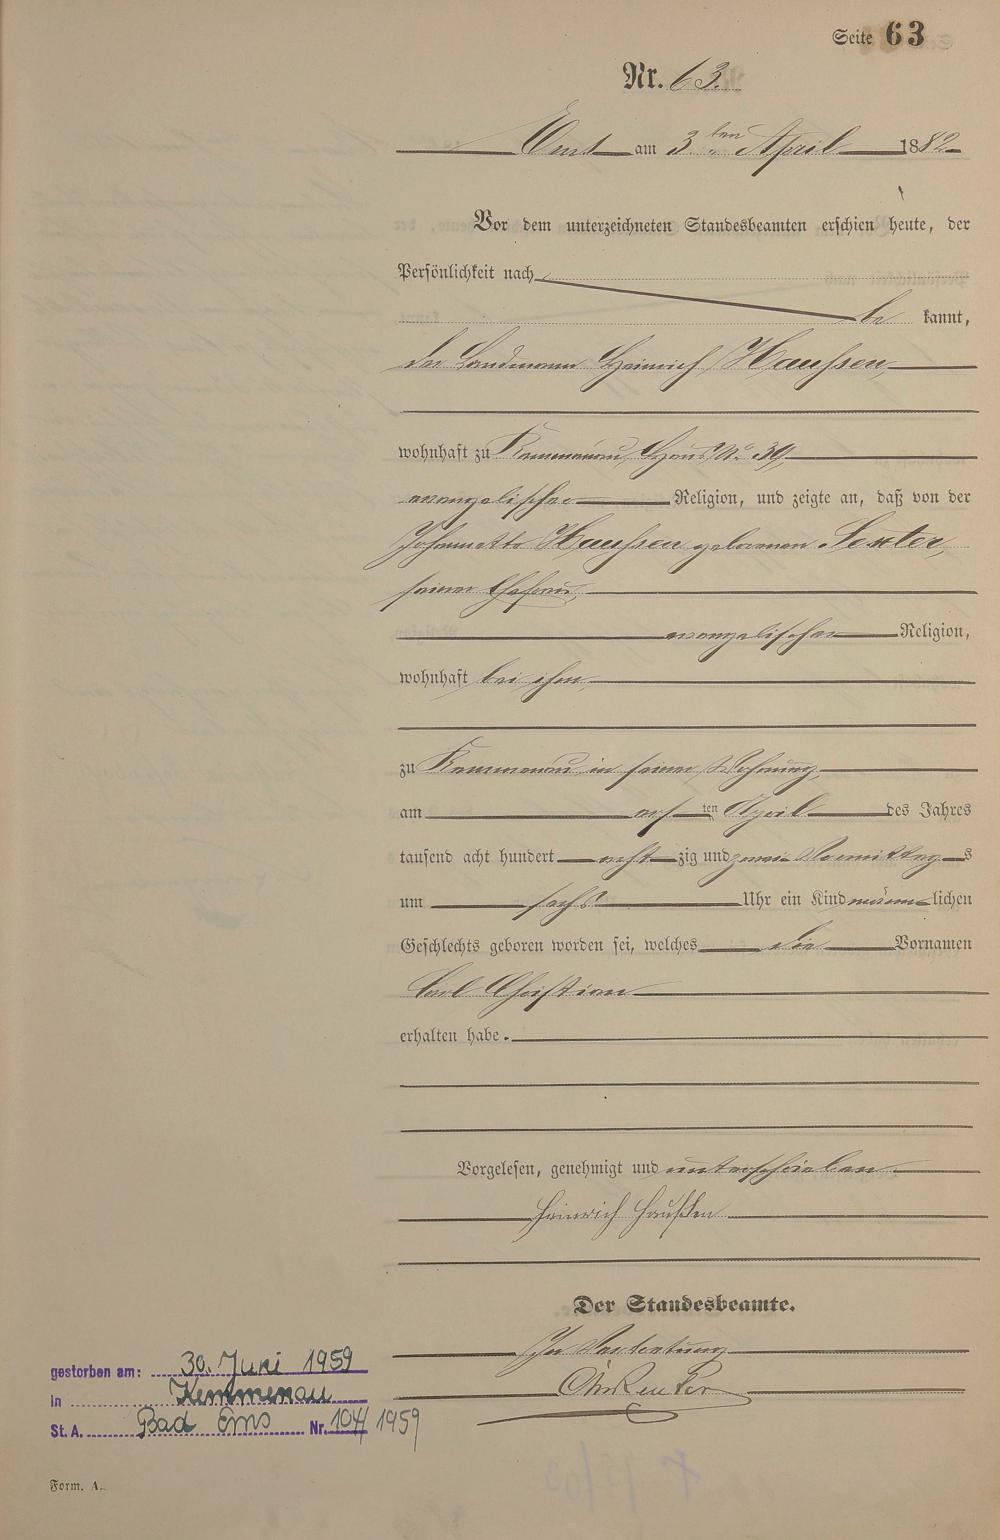 Seite 63
Nr. 63.
Ems am 3ten April 1882
Vor dem unterzeichneten Standesbeamten erschien heute, der
Persönlichkeit nach
be kannt,
der Landmann Heinrich Haußen,
wohnhaft zu Kemmenau, Haus No 39,
evangelischer Religion, und zeigte an, daß von der
Johannette Haußen geborenen Sexter,
seiner Ehefrau,
evangelischer Religion,
wohnhaft bei ihm,
zu Kemmenau in seiner Wohnung,
am ersten April des Jahres
tausend acht hundert acht zig und zwei Vormittags
um sechs Uhr ein Kind männlichen
Geschlechts geboren worden sei, welches die Vornamen
Carl Christian
erhalten habe.
Vorgelesen, genehmigt und unterschrieben
Heinrich Haußen
Der Standesbeamte.
In Vertretung
gestorben am: 30. Juni 1959
in Kemmenau
St. A. Bad Ems Nr. 104/1959
Form. A.